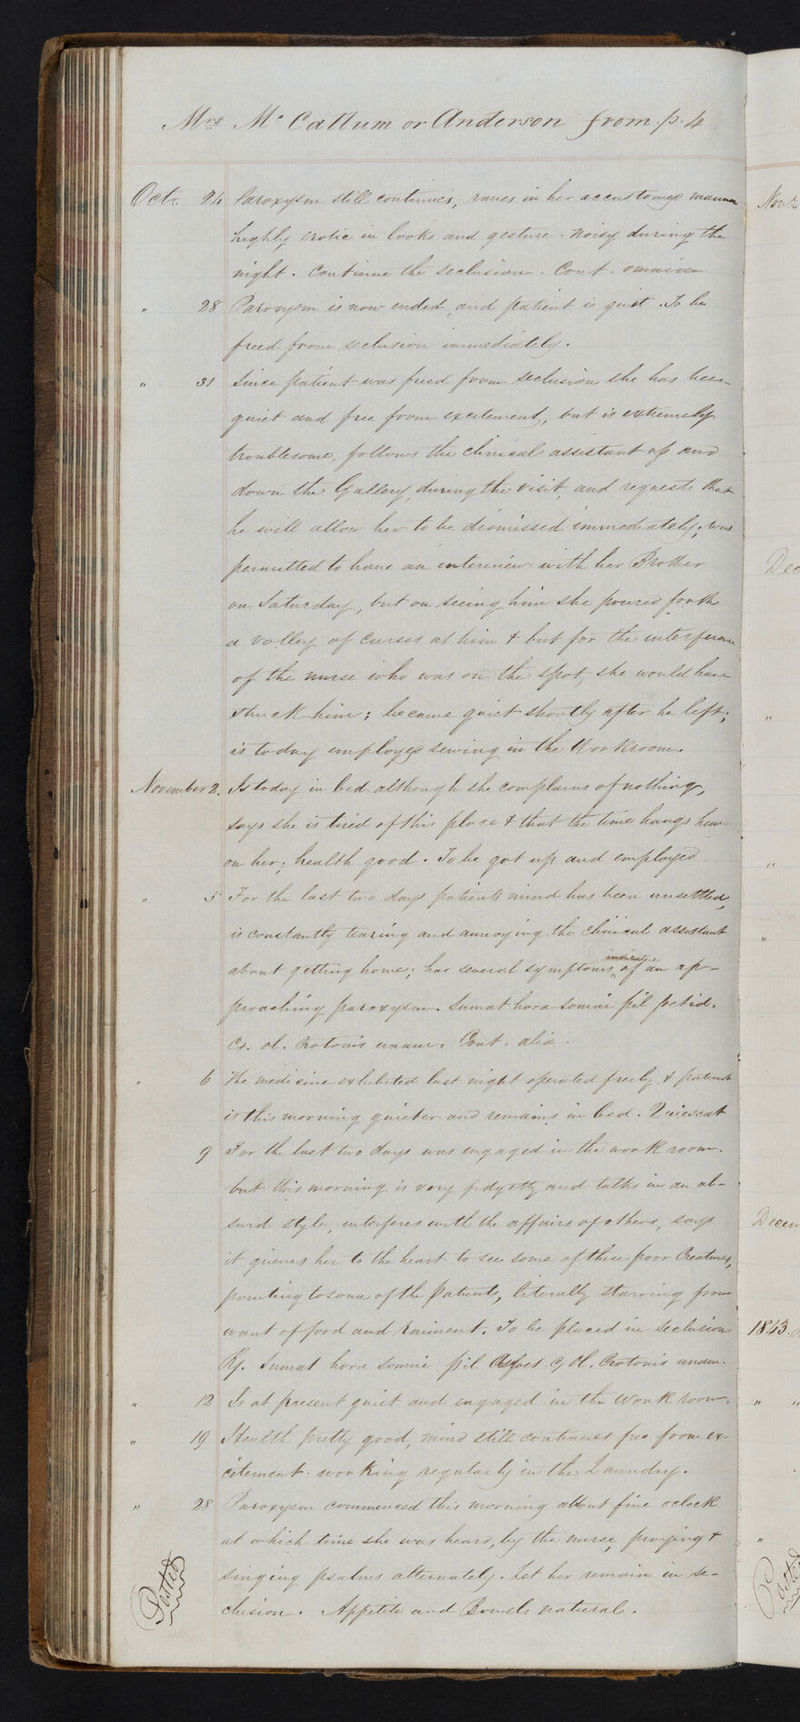 Mrs McCallum or Anderson from p. 4
Octr. 24 Paroxysm still continues, raves in her accustomed manner
highly erotic in looks and gesture. Noisy during the
night. Continue the seclusion. Cont. omnia
" 28 Paroxysm is now ended, and patient is quiet. To be
freed from seclusion immediately.
" 31 Since patient was freed from seclusion she has been
quiet and free from excitement, but is extremely
troublesome, follows the clinical assistant up and
down the Gallery, during the visit, and requests that
he will allow her to be dismissed immediately; was
permitted to have an interview with her Brother
on Saturday, but on seeing him she poured forth
a volley of curses at him & but for the interference
of the nurse who was on the spot, she would have
struck him; became quiet shortly after he left;
is today employed sewing in the Workroom.
November 2. Is today in bed although she complains of nothing,
says she is tired of this place & that the time hangs heavy
on her; health good. To be got up and employed
" 5 For the last two days patients mind has been unsettled,
is constantly teazing and annoying the clinical assistant
about getting home; has several symptoms indicative of an ap-
proaching paroxysm. Sumat hora somni pil foetid.
c. ol. Crotonis unam. Cont. alia.
" 6 The medicine exhibited last night operated freely & patient
is this morning quieter and remains in bed. Quiescat
9 For the last two days was engaged in the work room.
but this morning is very fidgetty and talks in an ab-
surd style, interferes with the affairs of others, says
it grieves her to the heart to see some of these poor Creatures,
pointing to some of the patients, literally starving from
want of food and raiment. To be placed in seclusion
Rx. Sumat hora somni pil c Ol. Crotonis unam.
" 12 Is at present quiet and engaged in the Work room.
" 19 Health pretty good, mind still continues free from ex-
citement. working regularly in the Laundry.
" 28 Paroxysm commenced this morning about five oclock
at which time she was heard, by the nurse praying &
singing psalms alternately. Let her remain in se-
clusion. Appetite and Bowels natural.
Posted
Novr
Dec
"
"
"
Decem
1843.
" "
"
Posted